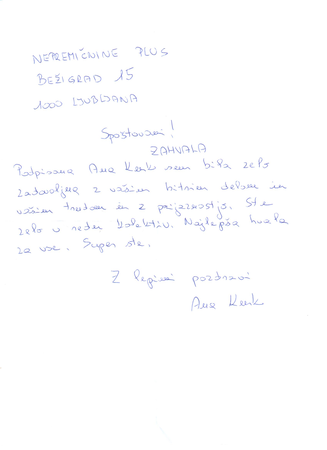 NEPREMIČNINE PLUS
BEŽIGRAD 15
1000 LJUBLJANA
Spoštovani!
ZAHVALA
Podpisana Ana Kenk sem bila zelo
zadovoljna z vašim hitrim delom in
vašim trudom in z prijaznostjo. Ste
zelo v redu kolektiv. Najlepša hvala
za vse. Super ste.
Z lepimi pozdravi
Ana Kenk